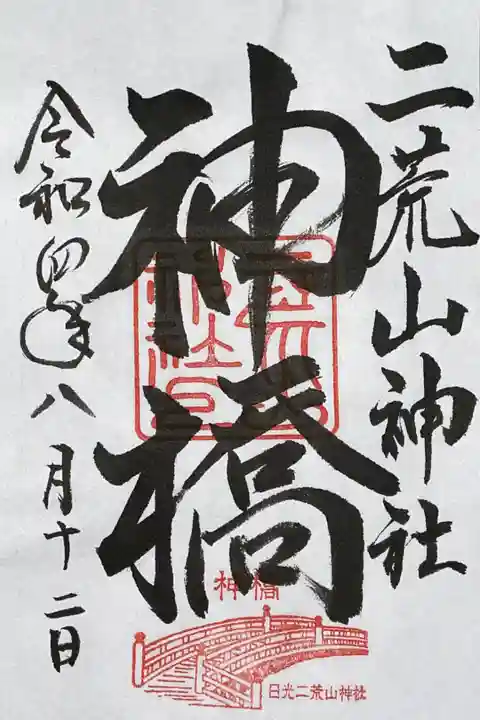 二荒山神社
神橋
令和四年八月十二日
神橋
日光二荒山神社